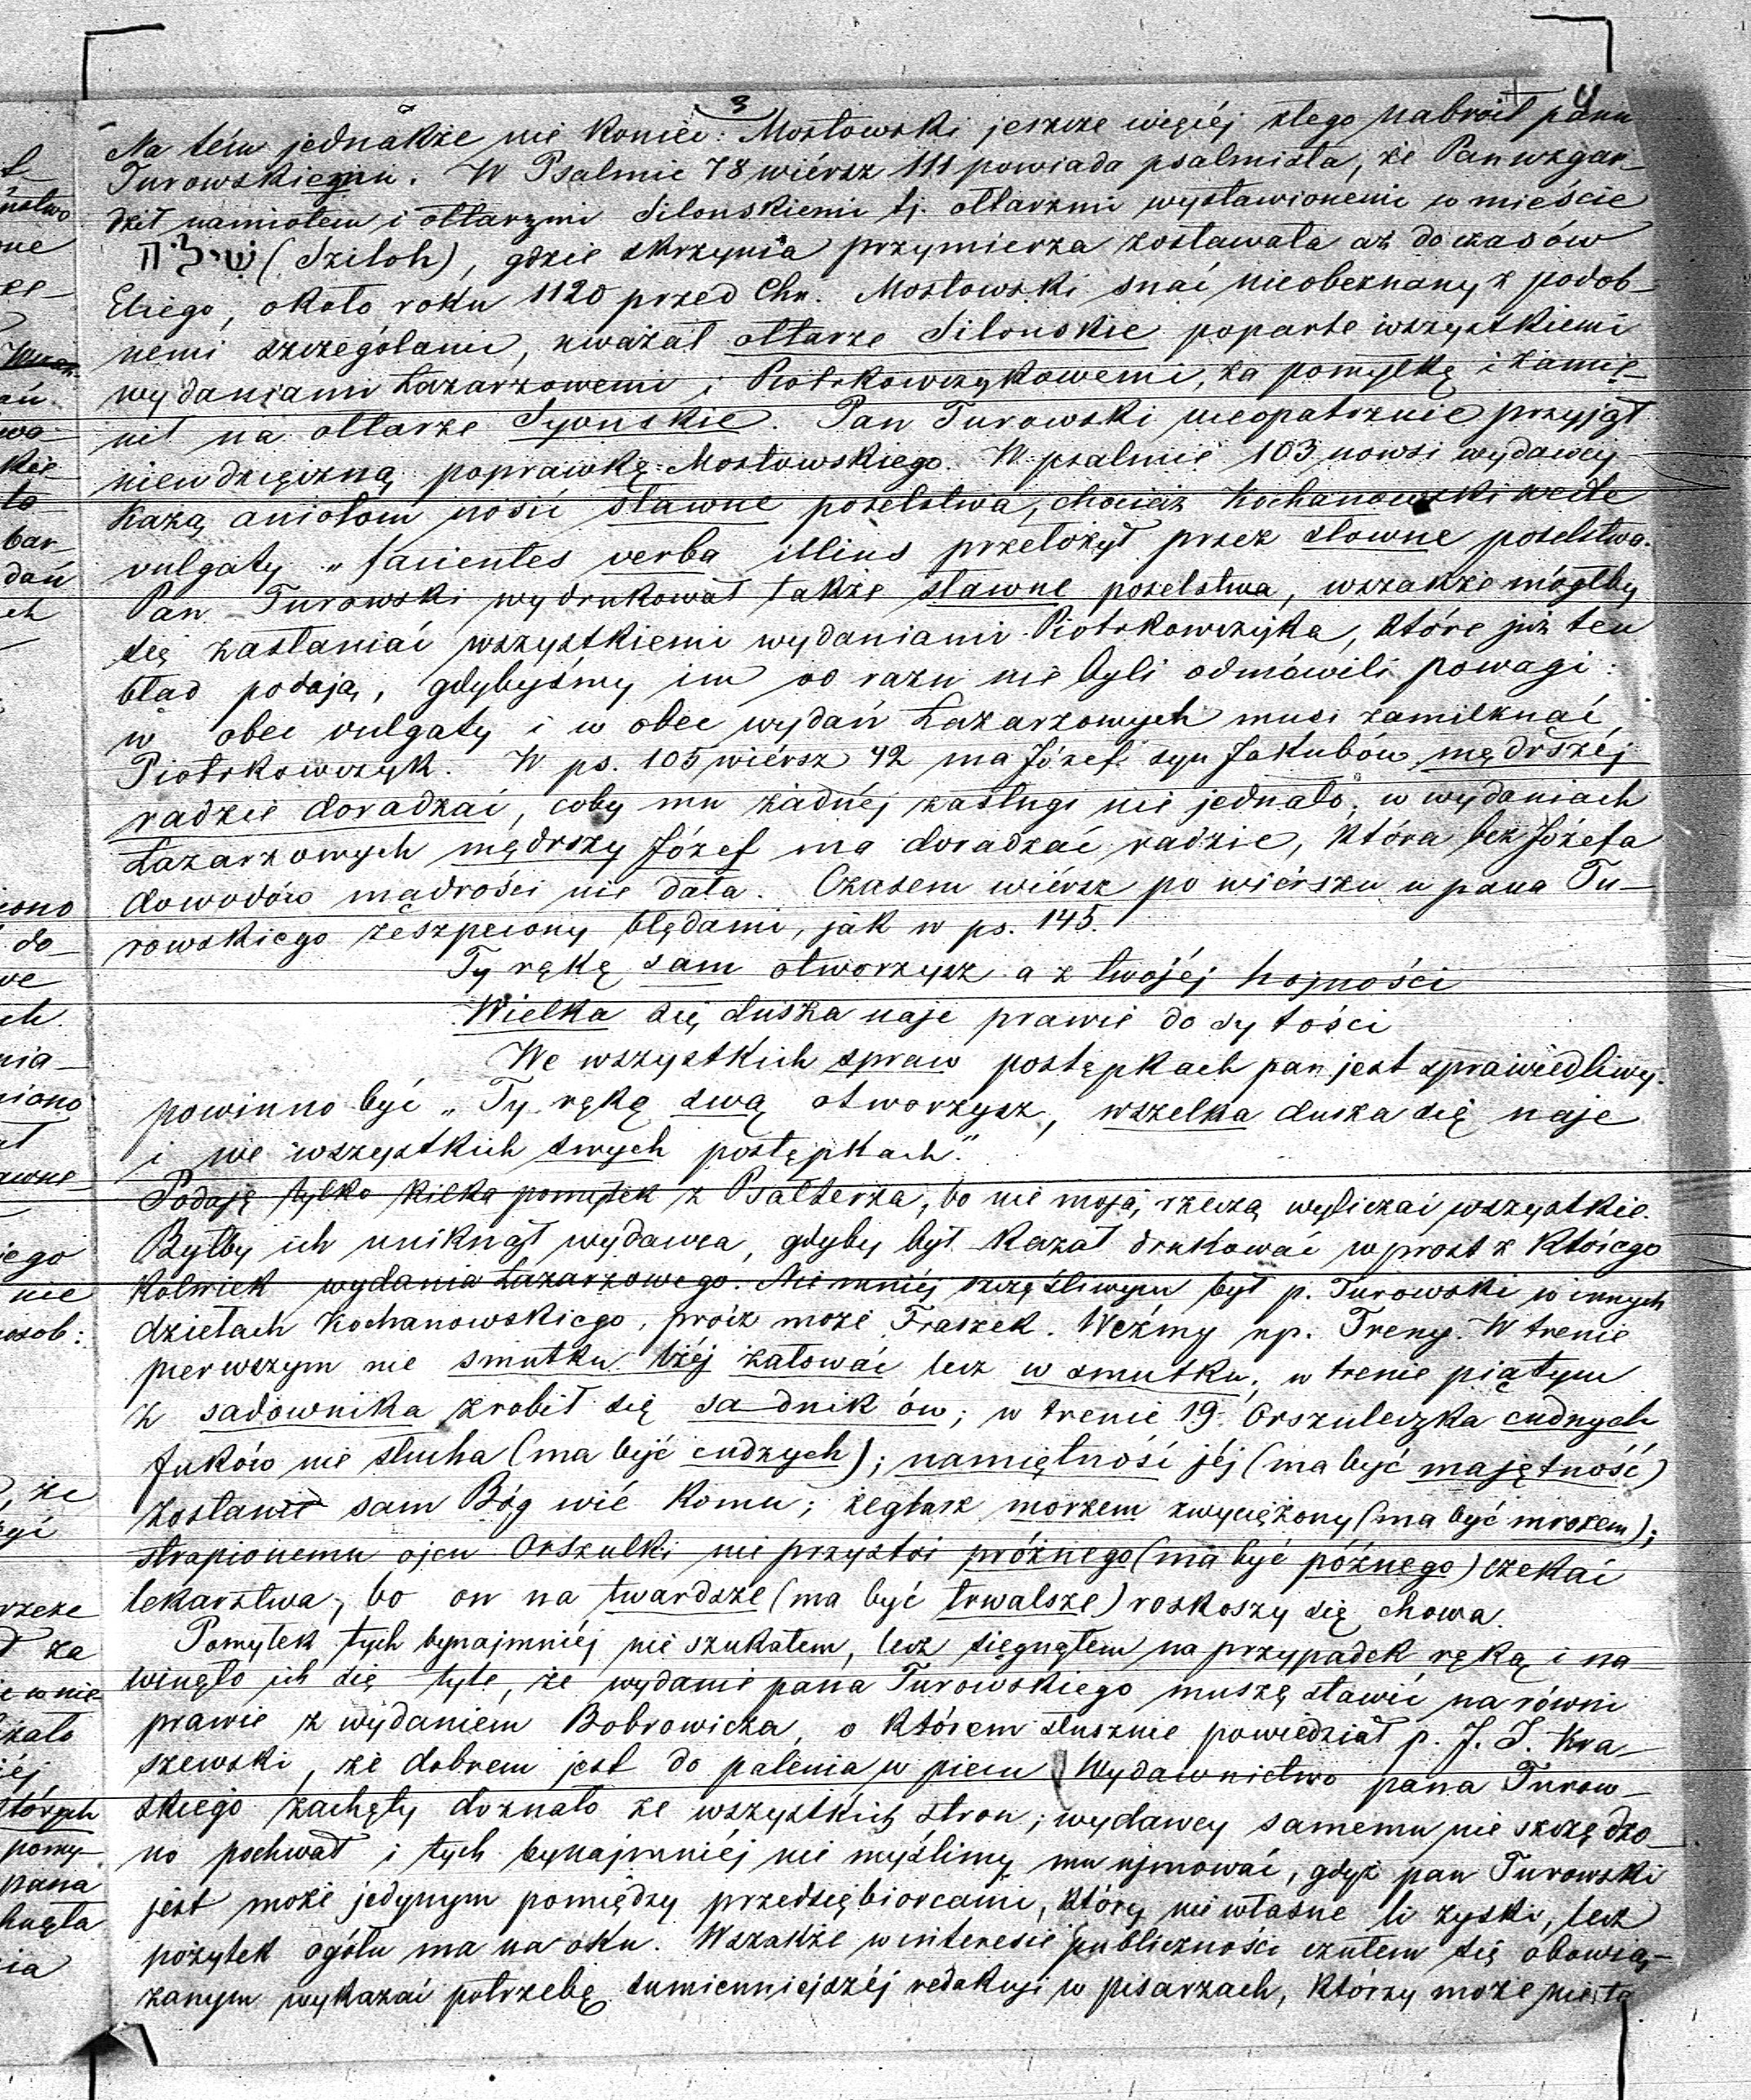 3
4
Na tém jednakże nie koniec: Mostowski jeszcze więcéj złego nabroił panu
Turowskiemu. W Psalmie 78 wiérsz 111 powiada psalmista, że Pan wzgar-
dził namiotem i ołtarzmi Silonskiemi tj. ołtarzmi wystawionemi w mieście
שִׁילֹה (Sziloh), gdzie skrzynia przymierza zostawała aż do czasów
Eliego, około roku 1120 przed Chr. Mostowski snać nieobeznany z podob-
nemi szczegółami, uważał ołtarze Silonskie poparte wszystkiemi
wydaniami Łazarzowemi i Piotrkowczykowemi, za pomyłkę i zamie-
nił na ołtarze Syonskie. Pan Turowski nieopatrznie przyjął
niewdzięczną poprawkę Mostowskiego. W psalmie 103 nowsi wydawcy
każą aniołom nosić sławne poselstwa, chociaż Kochanowski wedle
vulgaty „facientes verba illius przełożył przez słowne poselstwa.
Pan Turowski wydrukował także sławne poselstwa, wszakże mógłby
się zasłaniać wszystkiemi wydaniami Piotrkowczyka, które już ten
błąd podają, gdybyśmy im od razu nie byli odmówili powagi:
w obec vulgaty i w obec wydań Łazarzowych musi zamilknąć
Piotrkowczyk. W ps. 105 wiérsz 42 ma Józef syn Jakubów mędrszéj
radzie doradzać, coby mu żadnéj zasługi nie jednało; w wydaniach
Łazarzowych mędrszy Józef ma doradzać radzie, która bez Józefa
dowodów mądrości nie dała. Czasem wiérsz po wiérszu u pana Tu-
rowskiego zeszpecony błędami, jak w ps. 145.
Ty rękę sam otworzysz a z twojéj hojności
Wielka się dusza naje prawie do sytości
We wszystkich spraw postępkach pan jest sprawiedliwy.
powinno być „Ty rękę swą otworzysz, wszelka dusza się naje
i we wszystkich swych postępkach."
Podaję tylko kilka pomyłek z Psałterza, bo nie moją rzeczą wyliczać wszystkie.
Byłby ich uniknął wydawca, gdyby był kazał drukować wprost z któregо
kolwiek wydania Łazarzowego. Niemniéj szczęśliwym był p. Turowski w innych
dziełach Kochanowskiego, prócz może Fraszek. Weźmy np. Treny. W trenie
pierwszym nie smutku lżéj żałować lecz w smutku; w trenie piątym
z sadownika zrobił się sadnik ów; w trenie 19. Orszuleczka cudnych
fuków nie słucha (ma być cudzych); namiętność jéj (ma być majętność)
został sam Bóg wié komu; żeglarz morzem zwyciężony (ma być mrozem);
strapionemu ojcu Orszulki nie przystoi próżnego (ma być późnego) czekać
lekarstwa, bo on na twardsze (ma być trwalsze) roskoszy się chowa.
Pomyłek tych bynajmniéj nie szukałem, lecz sięgnąłem na przypadek ręką i na
winęło ich się tyle, że wydanie pana Turowskiego muszę stawić na równi
prawie z wydaniem Bobrowicza, o którem słusznie powiedział p. J. I. Kra-
szewski, że dobrem jest do palenia w piecu. Wydawnictwo pana Turow-
skiego zachęty doznało ze wszystkich stron; wydawcy samemu nie szczędzo-
no pochwał i tych bynajmniéj nie myślimy mu ujmować, gdyż pan Turowski
jest może jedynym pomiędzy przedsiębiorcami, który nie własne li zyski, lecz
pożytek ogółu ma na oku. Wszakże w interesie publiczności czułem się obowią-
zanym wykazać potrzebę sumienniejszéj redakcyi w pisarzach, którzy może nie ta